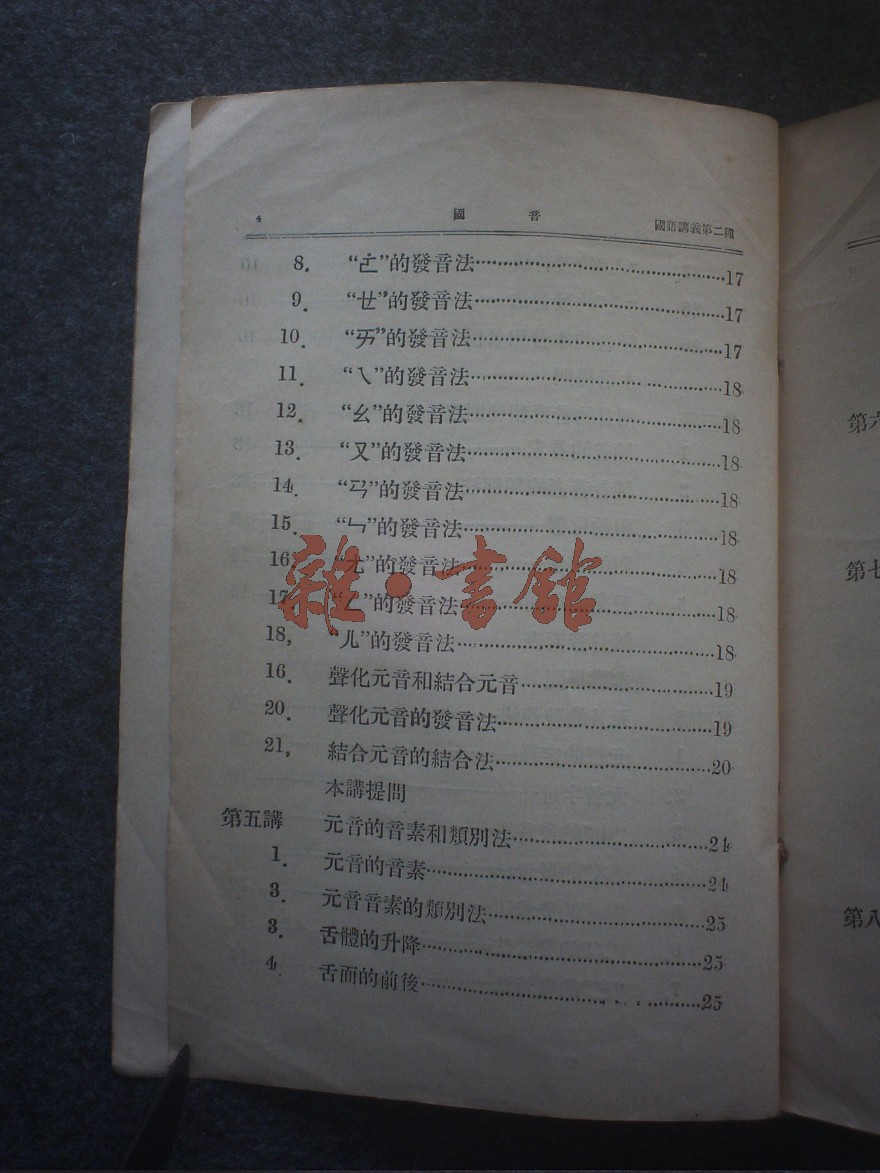 4 國音 國語講義第二種
8. “ㄜ̇”的發音法……17
9. “ㄝ”的發音法……17
10. “ㄞ”的發音法……17
11. “ㄟ”的發音法……18
12. “ㄠ”的發音法……18
13. “ㄡ”的發音法……18
14. “ㄢ”的發音法……18
15. “ㄣ”的發音法……18
16. “ㄤ”的發音法……18
17. “ㄥ”的發音法……18
18, “ㄦ”的發音法……18
16. 聲化元音和結合元音……19
20. 聲化元音的發音法……19
21, 結合元音的結合法……20
本講提問
第五講 元音的音素和類別法……24
1. 元音的音素……24
3. 元音音素的類別法……25
3. 舌體的升降……25
4 舌面的前後……25
雜·書館
第六
第七
第八